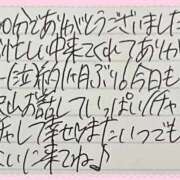 00分でありがとうございました
お忙しい中来てくれてありが
一位ヶ月ぶり!今日も
お話していっぱいイチャ
チャして幸せまたいつでも
あいに来てね♪